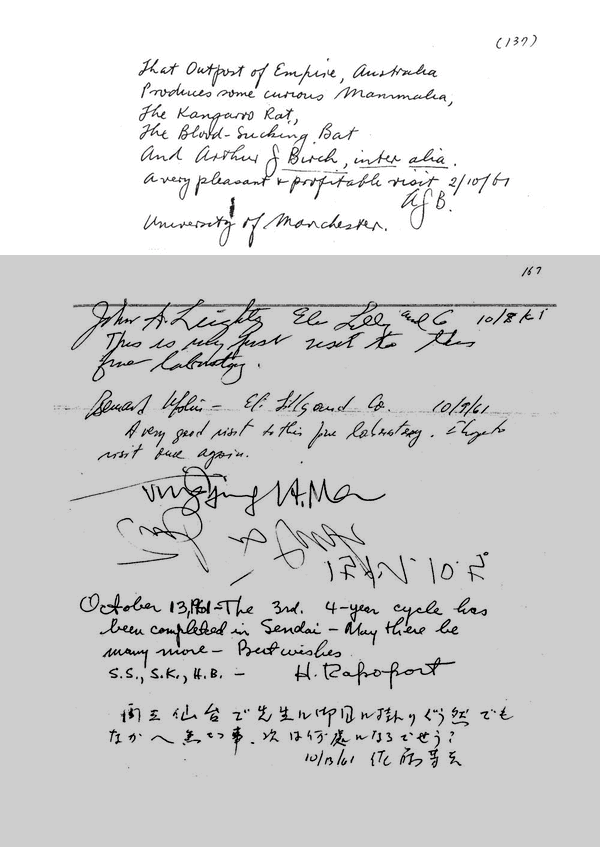 (137)
That Outpost of Empire, Australia
Produces some curious Mammalia,
The Kangaroo Rat,
The Blood-Sucking Bat
And Arthur J Birch, inter alia.
A very pleasant & profitable visit 2/10/61
AJB.
University of Manchester.
167
John A. Leighty Eli Lilly and Co 10/8/61
This is my first visit to this
fine laboratory.
Eli Lilly and Co. 10/9/61
A very good visit to this fine laboratory. I hope to
visit once again.
October 13, 1961 - The 3rd. 4-year cycle has
been completed in Sendai - May there be
many more - Best wishes
S.S., S.K., H.B. - H. Rapoport
仙台で先生に御目に掛り
次は何處になるでせう?
10/13/61 佐